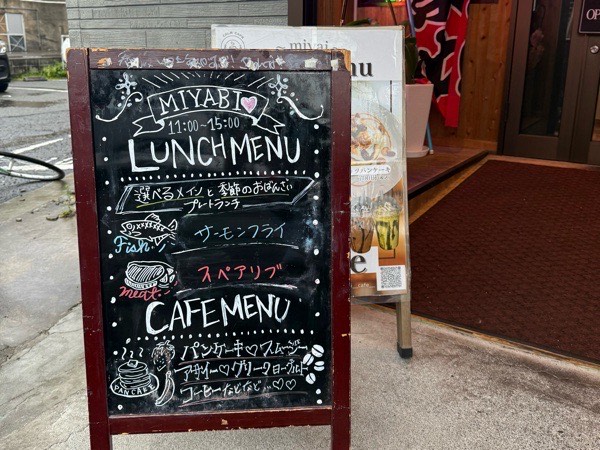 MIYABI
11:00~15:00
LUNCH MENU
選べるメインと季節のおばんざい
プレートランチ
Fish サーモンフライ
meat スペアリブ
CAFE MENU
パンケーキ♡スムージー
アサイー♡グリークヨーグルト
コーヒーなどなど...♡♡
PANCAKE
miyai
nu
パンケーキ
e
OP